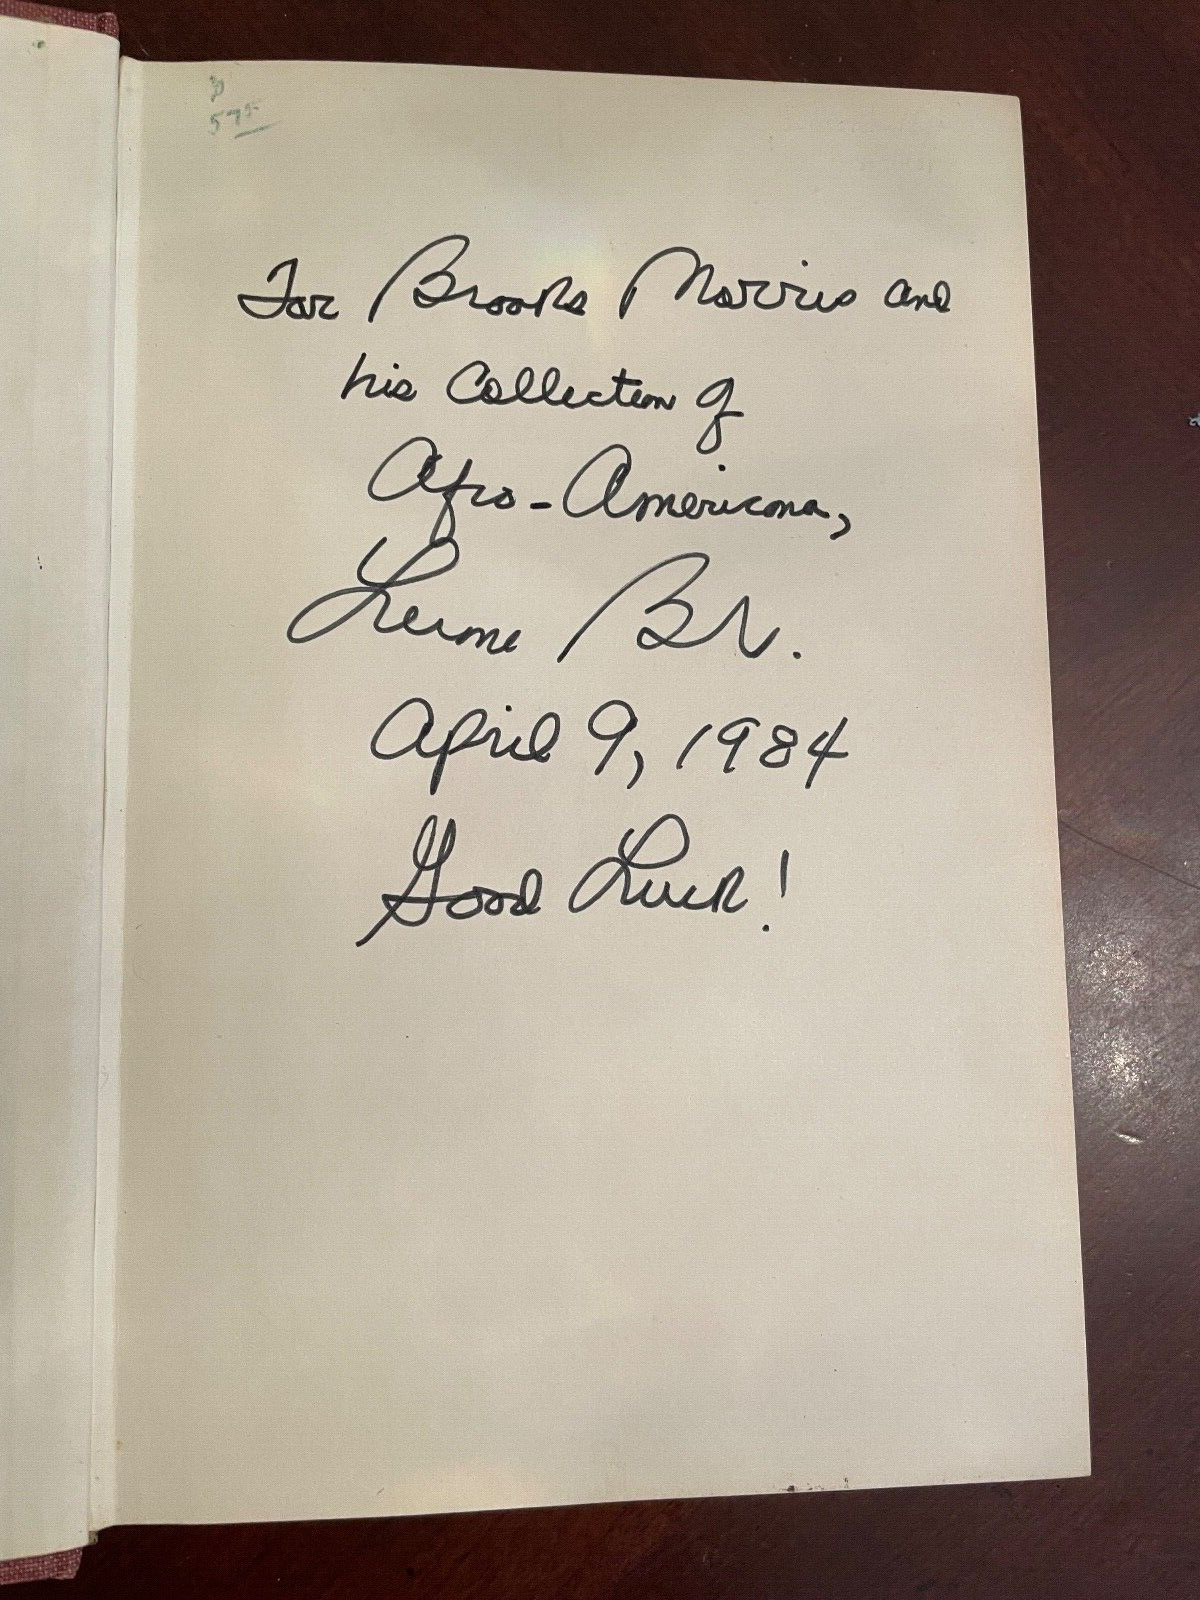 57
For Brooks Morris and
his Collection of
Afro-Americana,
Lerone
April 9, 1984
Good Luck!